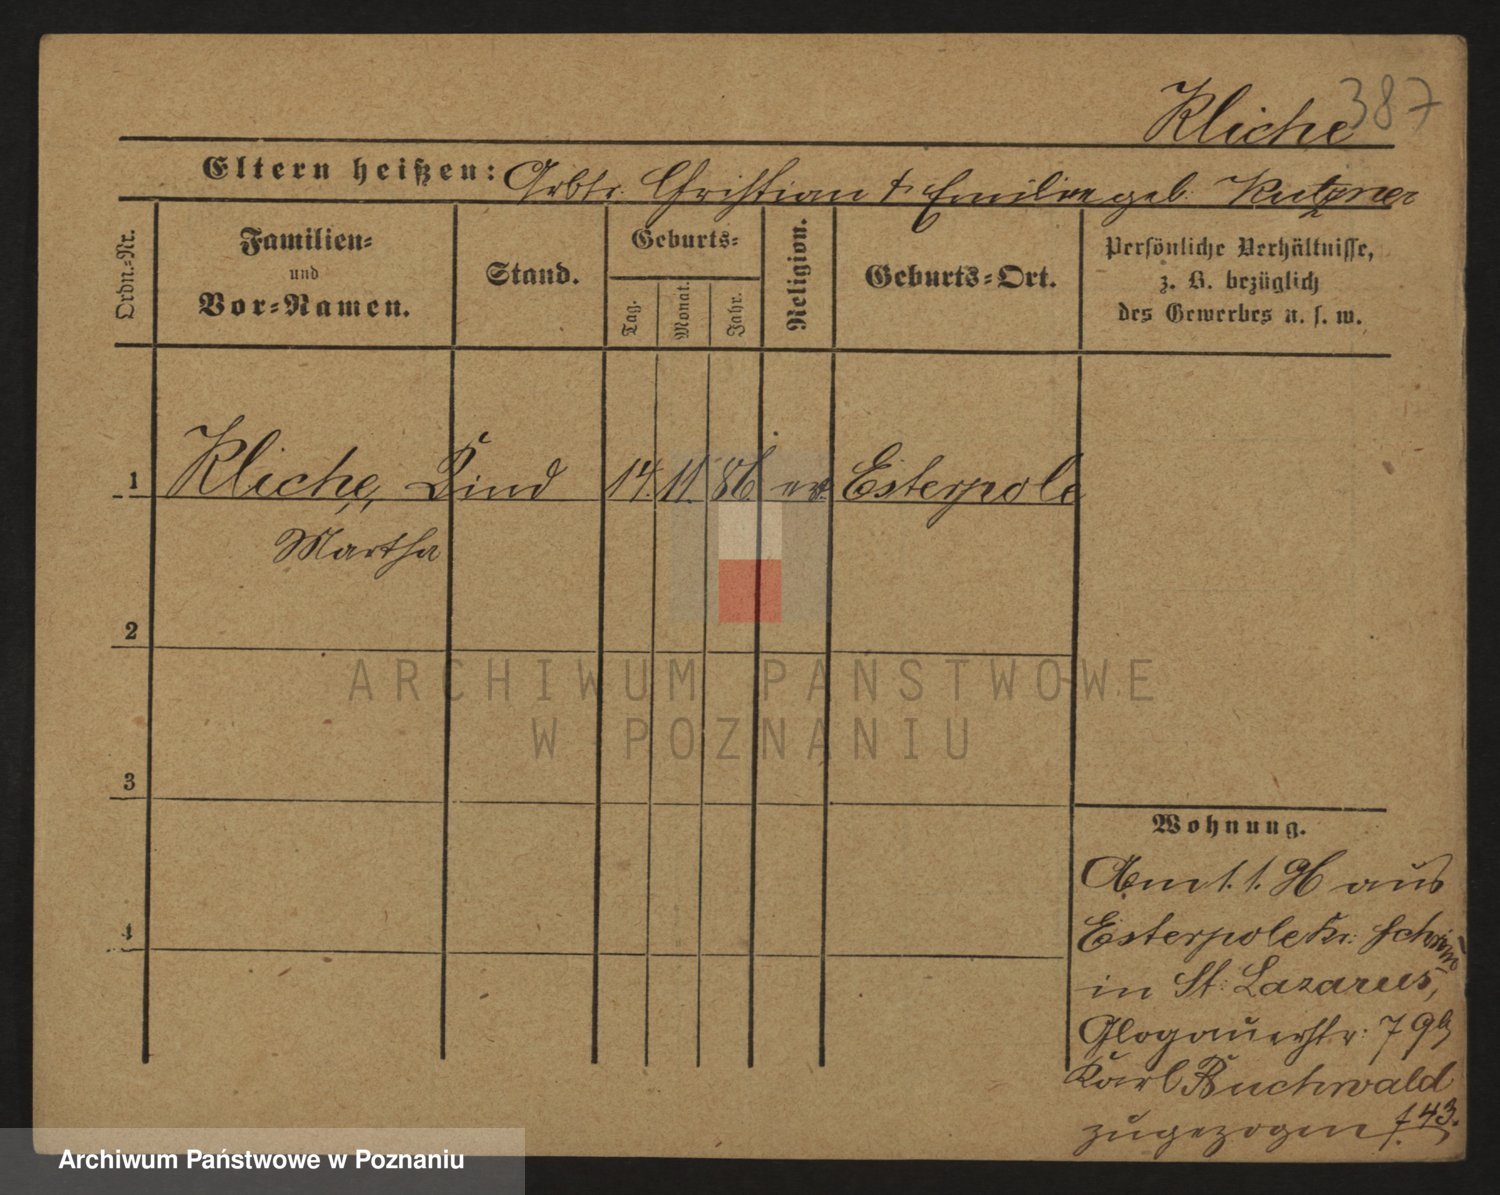 Kliche 387
Eltern heißen: Arbtr. Christian & Emilie geb. Kutzner
Ordn.-Nr.
Familien-
und
Vor-Namen.
Stand.
Geburts-
Tag.
Monat.
Jahr.
Religion.
Geburts-Ort.
Persönliche Verhältnisse,
z. B. bezüglich
des Gewerbes u. s. w.
1 Kliche, Kind 14. 11. 86 ev. Esterpole
Martha
2
3
4
Wohnung.
Am 1. 1. aus
Esterpole Kr. Schrimm
in St. Lazarus,
Glogauerstr. 79 b
Karl Buchwald
zugezogen f. 43.
ARCHIWUM PAŃSTWOWE
W POZNANIU
Archiwum Państwowe w Poznaniu